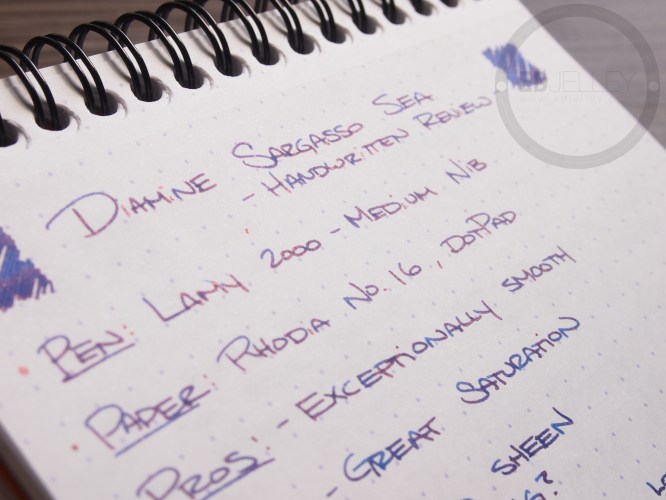 Diamine Sargasso Sea
- Handwritten Review
Pen: Lamy 2000 - Medium Nib
Paper: Rhodia No. 16, DotPad
Pros: - Exceptionally smooth
- Great Saturation
sheen
JELLEY